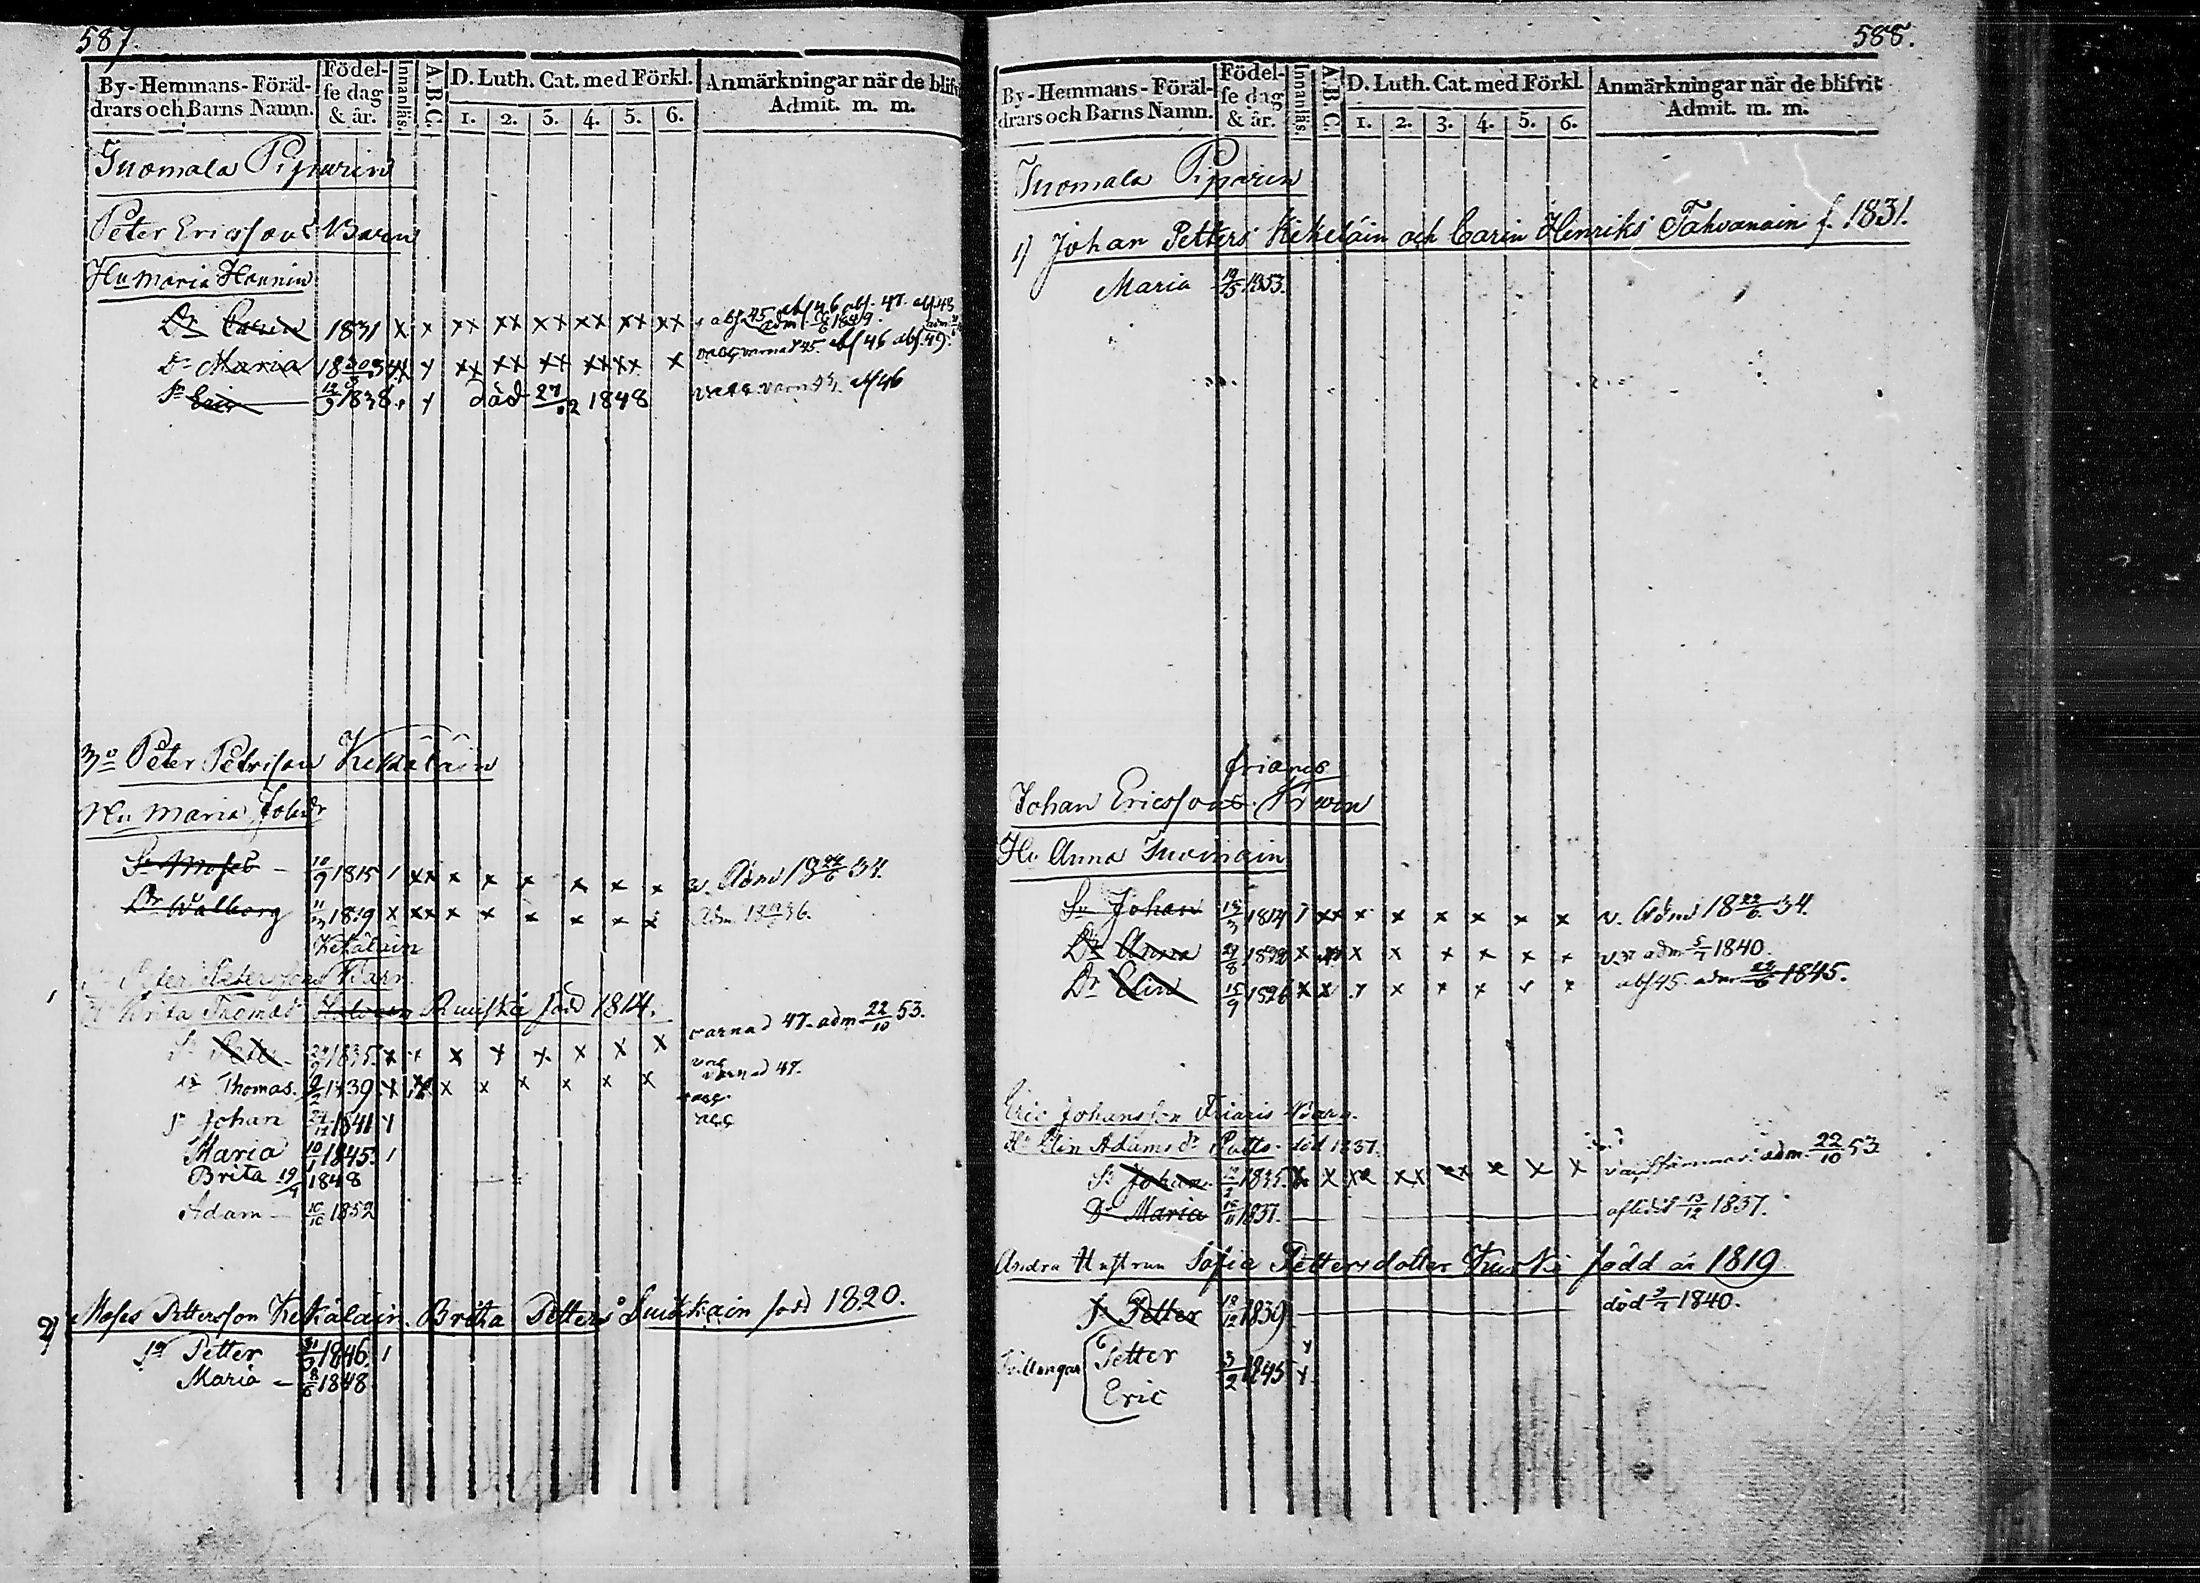 587.
By-Hemmans-Föräl-
drars och Barns Namn.
Födel-
se dag
& år.
Innanläs.
A.B.C.
D. Luth. Cat. med Förkl.
1. 2. 3. 4. 5. 6.
Anmärkningar när de blifv
Admit. m. m.
Inomala Piparin
Peter Ericssons Barn
Hu Maria Hannin
Dr Carin 1831 x x xx xx xx xx xx xx abs 45 abs 46 abs. 47. abs 48
adm 1849.
Dr Maria 18 34 x y xx xx xx xx xx x varnad 45. abs 46 abs. 49.
Sn Eric 12/9 1838 x y död 27/12 1848 abs 46
3o Peter Petrisson Kekäläin
Hu Maria Johdr
Sn Moses – 10/9 1815 / xx x x x x x x v. Adm 18 22/6 34.
Dr Walborg 11/3 1819 x xx x x x x x x Adm 18 36.
Kekäläin
Peter Petersson Barn
Hu Brita Thomasdr Ruuska född 1814.
Sn Peter 1835 x x x y x x x x varnad 47. adm 22/10 53.
Sn Thomas. 1839 x xx x x x x x x varnad 47.
Sn Johan 1841 y
Maria 10/1 1845 /
Brita 19/4 1848
Adam – 10/10 1852
2) Moses Pettersson Kekäläin. Brita Petters född 1820.
Sn Petter 31/3 1846. /
Maria – 8/6 1848
588.
By-Hemmans-Föräl-
drars och Barns Namn.
Födel-
se dag
& år.
Innanläs.
A.B.C.
D. Luth. Cat. med Förkl.
1. 2. 3. 4. 5. 6.
Anmärkningar när de blifvit
Admit. m. m.
Inomala Piparin
1) Johan Petters Kekeläin och Carin Henriks Tahvanain f. 1831.
Maria 19/5 1853.
friares
Johan Ericssons
Hu Anna Inomain
Sn Johan 13/3 1814 / xx x x x x x x v. Adm 18 22/6 34.
Dr Anna 21/8 18 x xx x x x x x x adm 5/7 1840.
Dr Elin 15/9 1826 x x x x x x x x abs 45. adm 22/6 1845.
Eric Johansson Friaris Barn.
Hu Elin Adamsdr död 1837.
Sn Johan 1835. x x xx xx xx x x x adm. 22/10 53.
Dr Maria 1837. afliden 13/12 1837.
Andra Hustrun Sofia Pettersdotter född år 1819
Sn Petter 18/12 1839 död 1840.
Tvillingar Petter 3/2 1845 y
Eric y